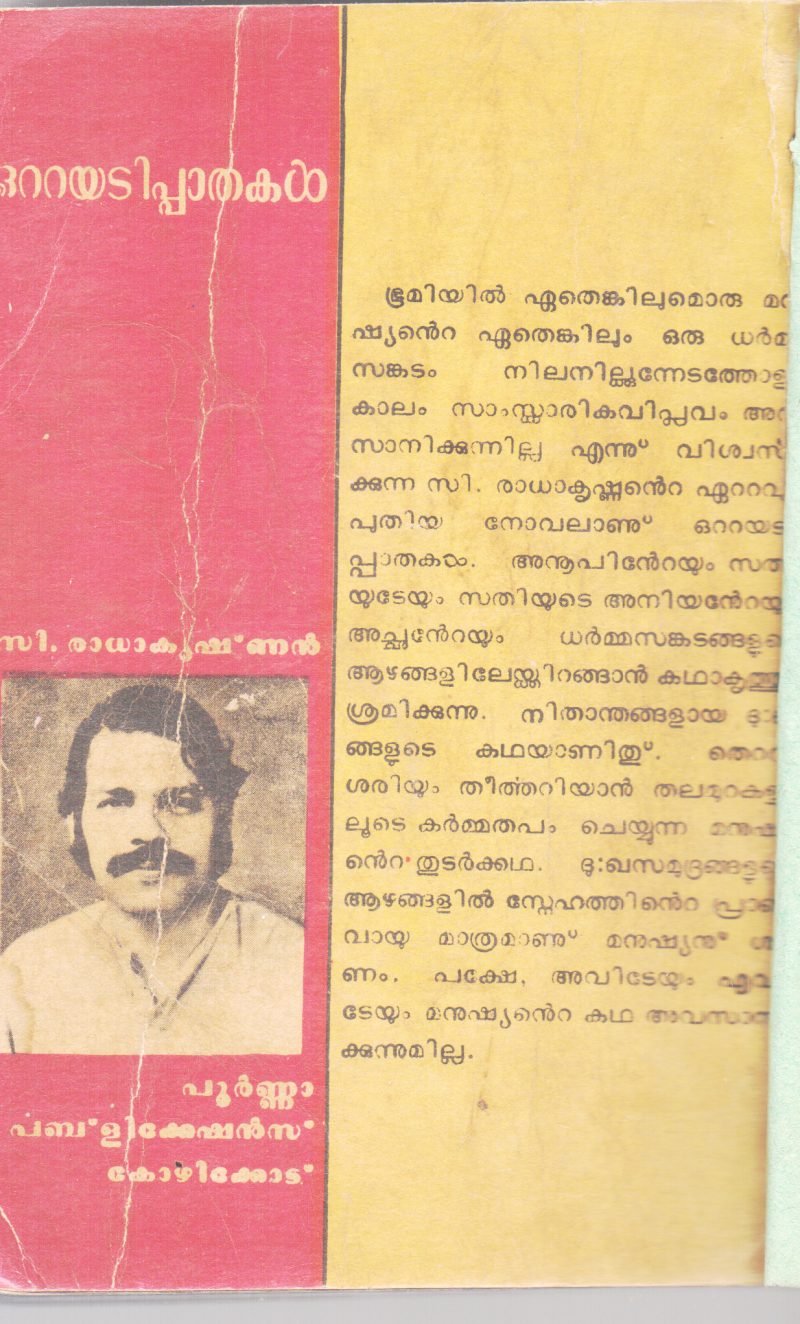 ഒററയടിപ്പാതകൾ
സി. രാധാകൃഷ്ണൻ
പൂർണ്ണാ
പബ്ളിക്കേഷൻസ്
കോഴിക്കോട്
ഭൂമിയിൽ ഏതെങ്കിലുമൊരു
ഷ്യൻെറ ഏതെങ്കിലും ഒരു
സങ്കടം നിലനില്ക്കുന്നേടത്തോളം
കാലം സാംസ്കാരികവിപ്ലവം
സാനിക്കുന്നില്ല എന്നു് വിശ്വസി
ക്കുന്ന സി. രാധാകൃഷ്ണൻെറ ഏററവും
പുതിയ നോവലാണു് ഒററയടി
പ്പാതകൾ. അനൂപിൻേറയും സതി
യുടേയും സതിയുടെ അനിയൻേറയും
അച്ഛൻേറയും ധർമ്മസങ്കടങ്ങളുടെ
ആഴങ്ങളിലേയ്ക്കിറങ്ങാൻ കഥാകൃത്തു
ശ്രമിക്കുന്നു. നിതാന്തങ്ങളായ
ങ്ങളുടെ കഥയാണിതു്.
ശരിയും തീർത്തറിയാൻ തലമുറകളി
ലൂടെ കർമ്മതപം ചെയ്യുന്ന
ൻെറ തുടർക്കഥ. ദുഃഖസമുദ്രങ്ങളുടെ
ആഴങ്ങളിൽ സ്നേഹത്തിൻെറ പ്രാണ
വായു മാത്രമാണു് മനുഷ്യനു്
ണം. പക്ഷേ, അവിടേയും എവി
ടേയും മനുഷ്യൻെറ കഥ അവസാനി
ക്കുന്നുമില്ല.